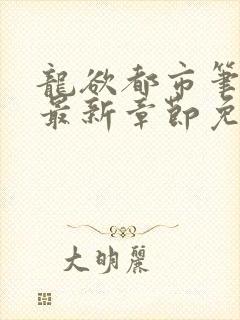 龍欲都市筆
最新章節免
大明麗